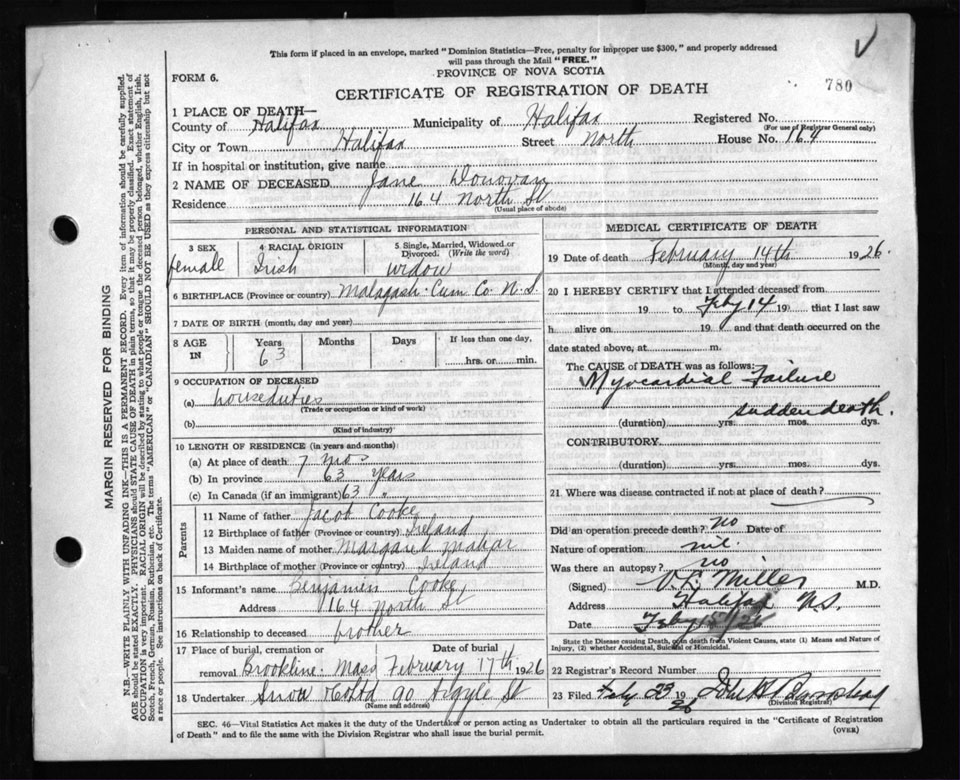 This form if placed in an envelope, marked "Dominion Statistics—Free, penalty for improper use $300," and properly addressed
will pass through the Mail "FREE."
PROVINCE OF NOVA SCOTIA
780
FORM 6.
CERTIFICATE OF REGISTRATION OF DEATH
1 PLACE OF DEATH—
County of Halifax Municipality of Halifax Registered No.
(For use of Registrar General only)
City or Town Halifax Street North House No. 164
If in hospital or institution, give name
2 NAME OF DECEASED Jane Donovan
Residence 164 North St
(Usual place of abode)
PERSONAL AND STATISTICAL INFORMATION
3 SEX 4 RACIAL ORIGIN 5 Single, Married, Widowed or Divorced. (Write the word)
female Irish widow
6 BIRTHPLACE (Province or country) Malagash. Cum Co N.S.
7 DATE OF BIRTH (month, day and year)
8 AGE IN Years Months Days If less than one day,
63 hrs. or min.
9 OCCUPATION OF DECEASED
(a) houseduties
(Trade or occupation or kind of work)
(b)
(Kind of industry)
10 LENGTH OF RESIDENCE (in years and months):
(a) At place of death 7 mos
(b) In province 63 years
(c) In Canada (if an immigrant) 63 "
Parents
11 Name of father Jacob Cooke
12 Birthplace of father (Province or country) Ireland
13 Maiden name of mother Margaret Mahar
14 Birthplace of mother (Province or country) Ireland
15 Informant's name Benjamin Cooke
Address 164 North St
16 Relationship to deceased brother
17 Place of burial, cremation or removal Date of burial
Brookline. Mass February 17th 1926
18 Undertaker Snow & Co Ltd 90 Argyle St
(Name and address)
MEDICAL CERTIFICATE OF DEATH
19 Date of death February 14th 1926.
(Month, day and year)
20 I HEREBY CERTIFY that I attended deceased from
19 to Feby 14 19 that I last saw
h alive on 19 and that death occurred on
date stated above, at m.
The CAUSE of DEATH was as follows:
Myocardial Failure
sudden death.
(duration) yrs. mos. dys.
CONTRIBUTORY
(duration) yrs. mos. dys.
21. Where was disease contracted if not at place of death?
Did an operation precede death? no Date of
Nature of operation nil.
Was there an autopsy? no
(Signed) V. L. Miller M.D.
Address Halifax N.S.
Date Feby 15/26
State the Disease causing Death, or in death from Violent Causes, state (1) Means and Nature of
Injury, (2) whether Accidental, Suicidal or Homicidal.
22 Registrar's Record Number
23 Filed Feby 23 1926
(Division Registrar)
SEC. 46—Vital Statistics Act makes it the duty of the Undertaker or person acting as Undertaker to obtain all the particulars required in the "Certificate of Registration
of Death" and to file the same with the Division Registrar who shall issue the burial permit.
(OVER)
MARGIN RESERVED FOR BINDING
N.B.—WRITE PLAINLY, WITH UNFADING INK—THIS IS A PERMANENT RECORD. Every item of information should be carefully supplied.
AGE should be stated EXACTLY. PHYSICIANS should STATE CAUSE OF DEATH in plain terms, so that it may be properly classified. Exact statement of
OCCUPATION is very important. RACIAL ORIGIN will be described by stating to what people or tongue the deceased person belonged, whether English, Irish,
Scotch, French, German, Russian, Ruthenian, etc. The terms "AMERICAN" or "CANADIAN" SHOULD NOT BE USED as they express citizenship but not
a race or people. See instructions on back of Certificate.